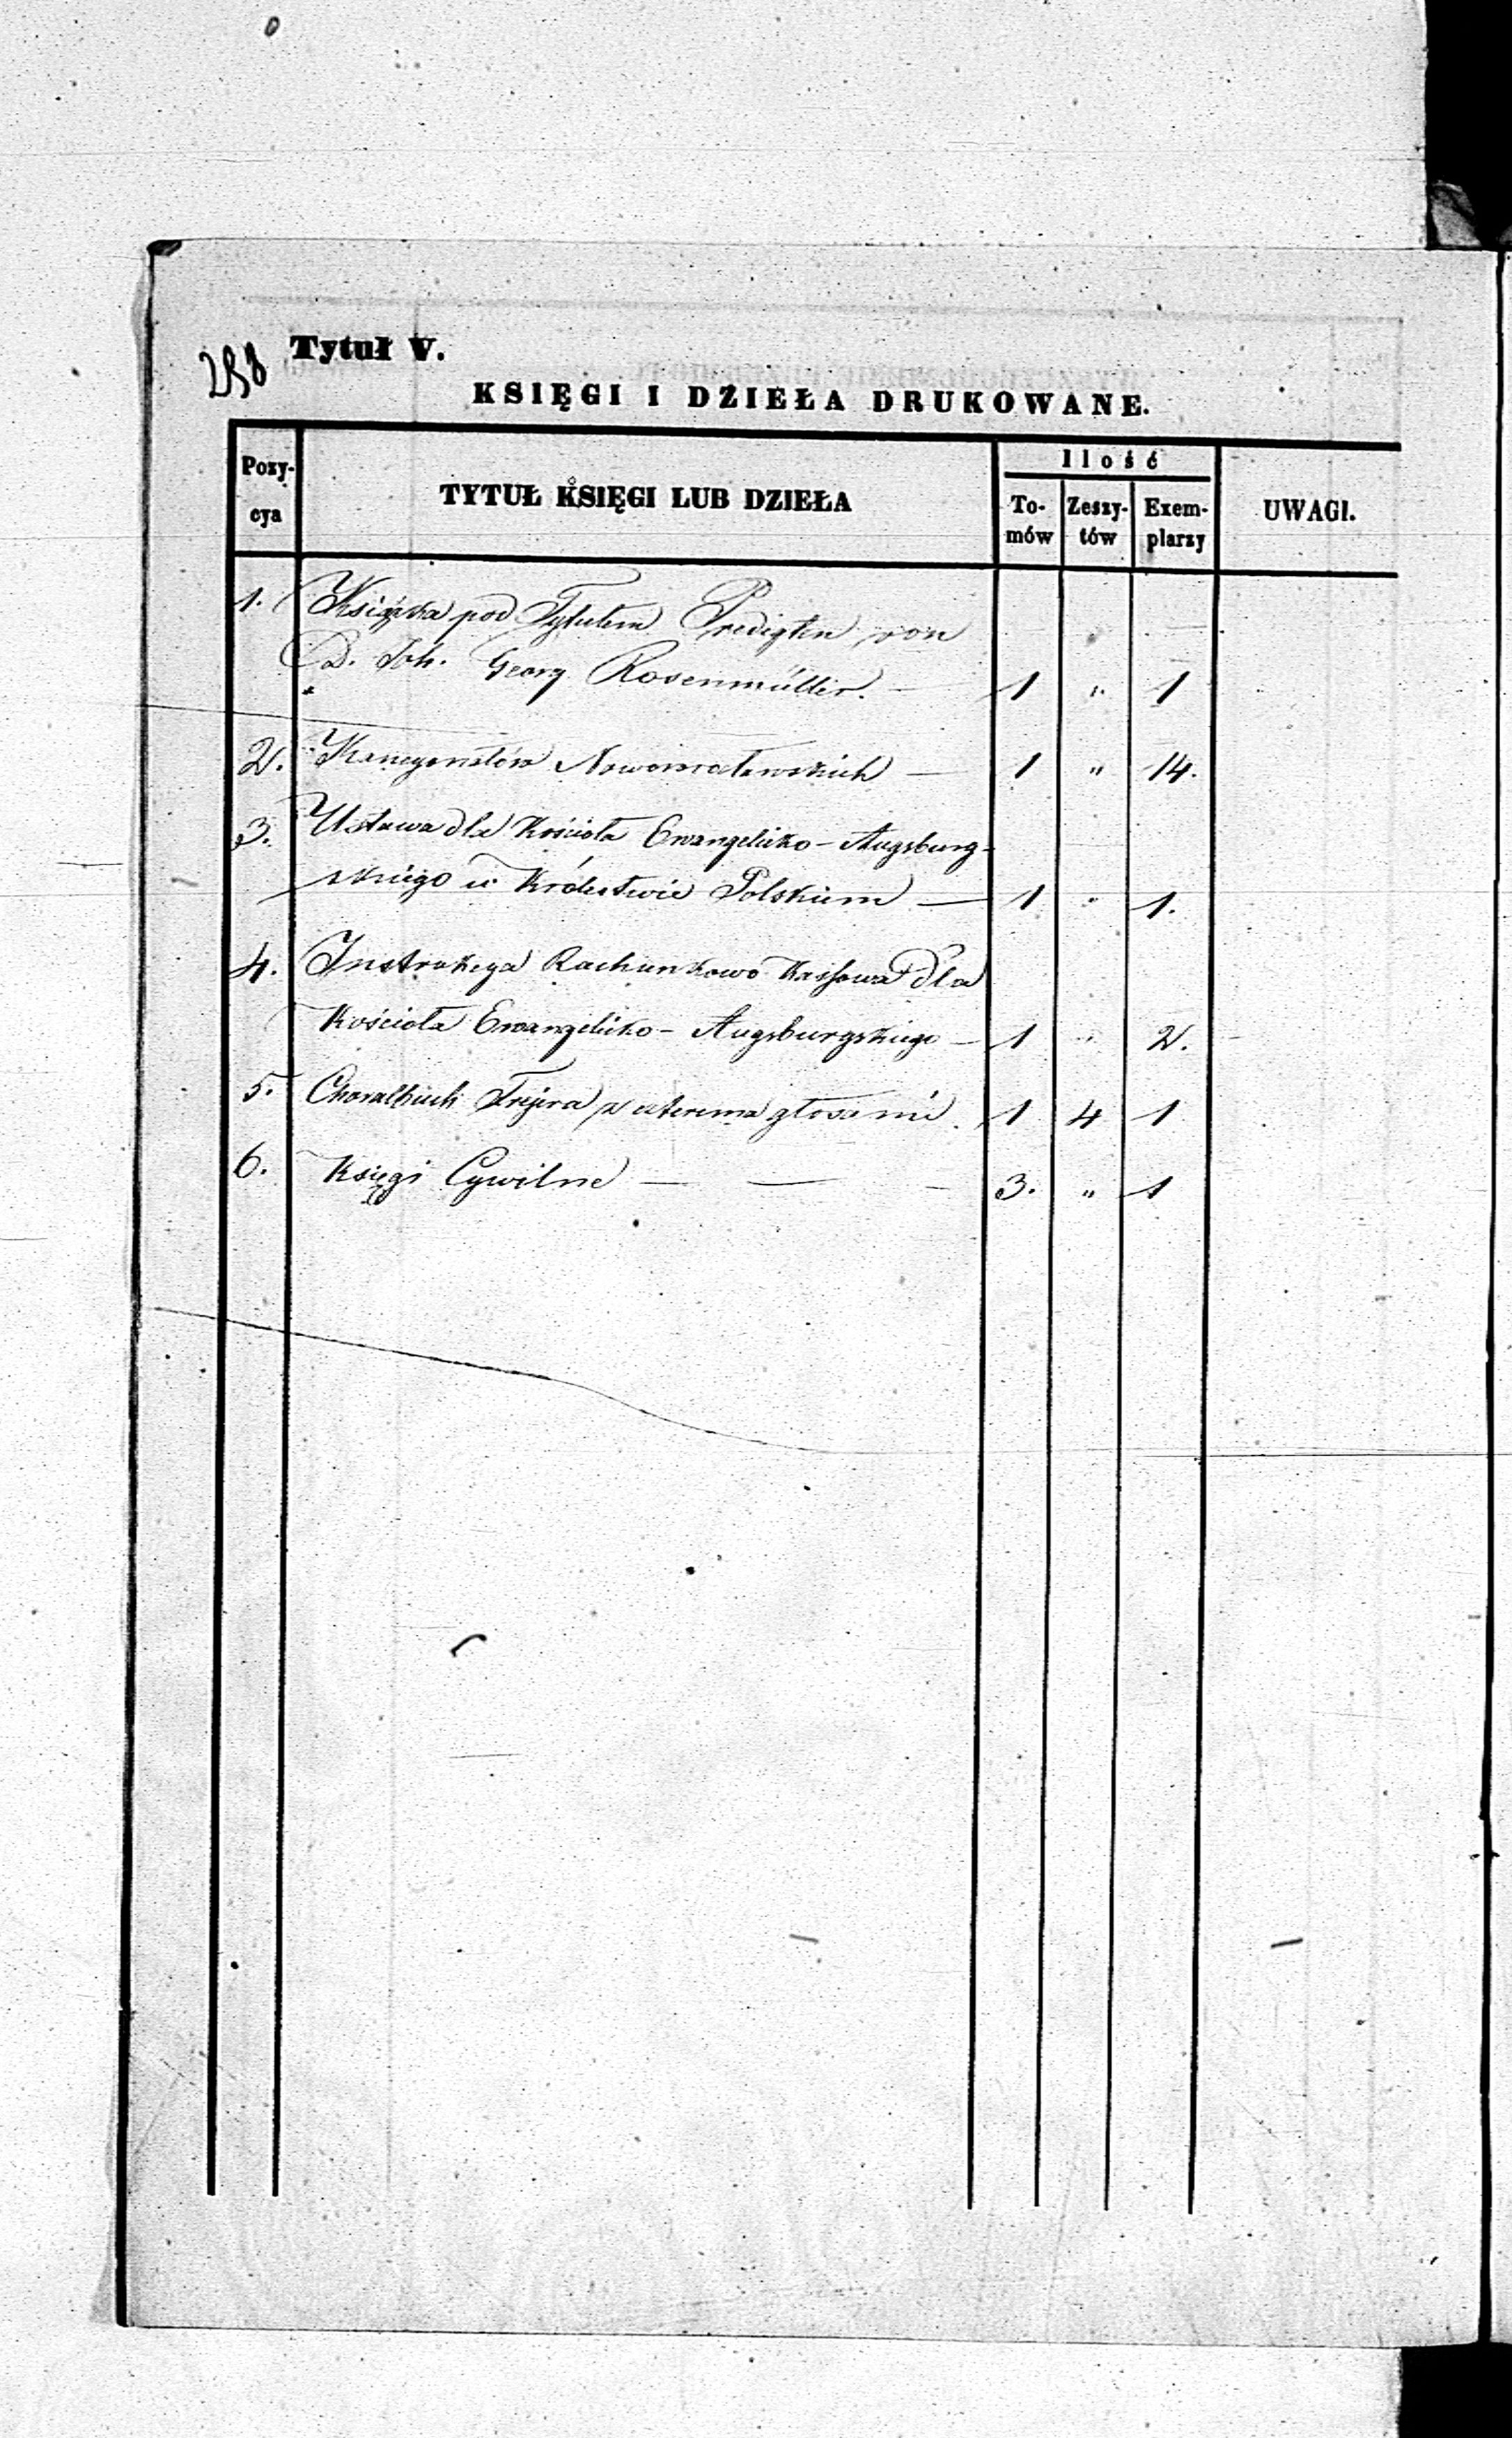 258
Tytuł V.
KSIĘGI I DZIEŁA DRUKOWANE.
Pozy-
cya
TYTUŁ KSIĘGI LUB DZIEŁA
Ilość
To-
mów
Zeszy-
tów
Exem-
plarzy
UWAGI.
1. Książka pod Tytułem Predigten von
D. Joh. Georg Rosenmüller. — 1 " 1
2. Kancyonałów — 1 " 14.
3. Ustawa dla Kościoła Ewangelicko-Augsburg-
skiego w Królestwie Polskiem — 1 " 1.
4. Instrukcya Rachunkowo Kassowa dla
Kościoła Ewangelicko-Augsburgskiego — 1 " 2.
5. Choralbuch z czterema głosami. 1 4 1
6. Księgi Cywilne — — — 3. " 1